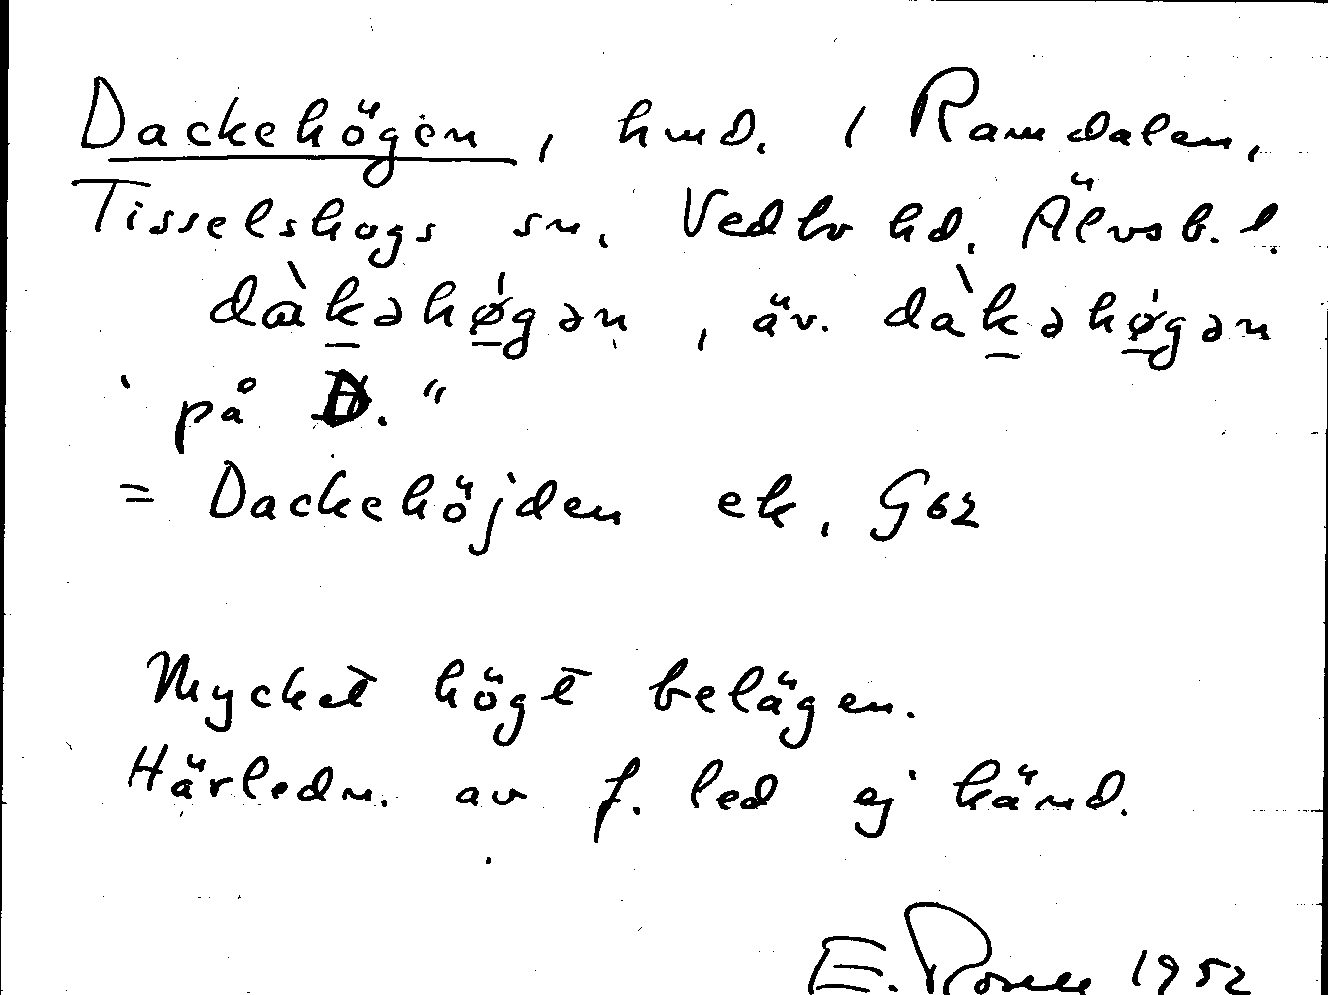 Dackehögen, hmd. i Ramdalen,
Tisselskogs sn. Vedbo hd. Älvsb. l.
dàkəhø̀gən, äv. dàkəhø̀gən
"på D."
= Dackehöjden ek. G62
Mycket högt belägen.
Härledn. av f. led ej känd.
E. 1952